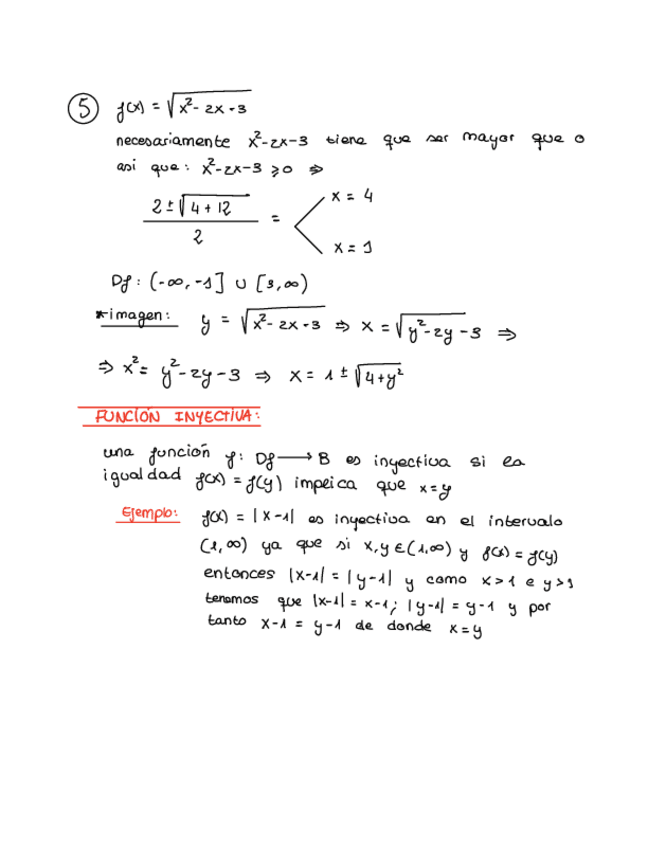 5 f(x) = √x²- 2x-3
necesariamente x²-2x-3 tiene que ser mayor que 0
asi que: x²-2x-3 ⩾0 ⇒
2±√4+12 / 2 = x = 4
x = 1
Df: (-∞, -1] ∪ [3,∞)
*imagen: y = √x²- 2x-3 ⇒ x = √y²-2y-3 ⇒
⇒ x² = y²-2y-3 ⇒ x = 1 ± √4+y²
FUNCIÓN INYECTIVA:
una función f: Df ⟶ B es inyectiva si la
igualdad f(x) = f(y) implica que x=y
Ejemplo: f(x) = |x-1| es inyectiva en el intervalo
(1,∞) ya que si x,y ∈(1,∞) y f(x) = f(y)
entonces |x-1| = |y-1| y como x>1 e y>1
tenemos que |x-1| = x-1; |y-1| = y-1 y por
tanto x-1 = y-1 de donde x=y